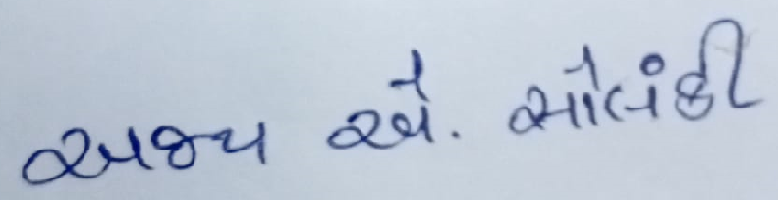 અજય એ. સોલંકી